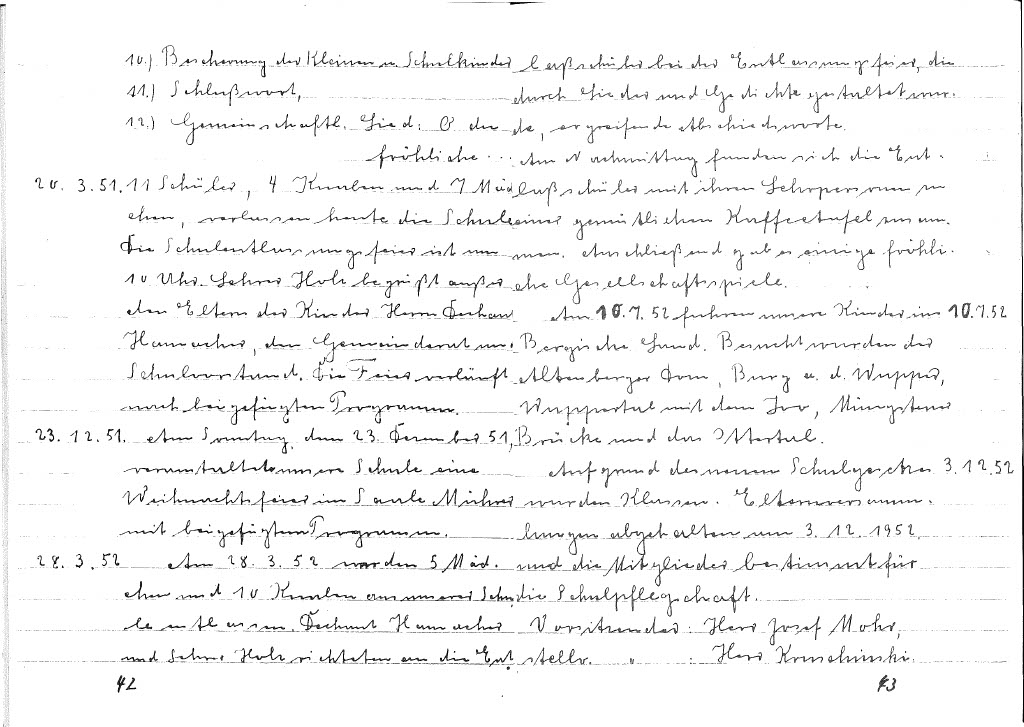 10.) Bescherung der Kleinen u. Schulkinder
11.) Schlußwort,
12.) Gemeinschaftl. Lied: O du
fröhliche ...
20. 3.51. 11 Schüler, 4 Knaben und 7 Mäd
chen, verlassen heute die Schule
Die Schulentlassungsfeier ist um
10 Uhr. Lehrer Holz begrüßt außer
den Eltern der Kinder Herrn Dechan
Hamacher, den Gemeinderat u.
Schulvorstand. Die Feier verläuft
nach beigefügten Programm.
23. 12. 51. Am Sonntag, dem 23. Dezember 51,
veranstaltete unsere Schule eine
Weihnachtsfeier im Saale Mührer
mit beigefügten Programm.
28. 3. 52 Am 28. 3. 52 wurden 5 Mäd.
chen und 10 Knaben aus unserer Schu
le entlassen. Dechant Hamacher
und Lehrer Holz richteten an die Ent
42
laßschüler bei der Entlassungsfeier, die
durch Lieder und Gedichte gestaltet war.
de, ergreifende Abschiedsworte.
Am Nachmittag fanden sich die Ent-
laßschüler mit ihren Lehrpersonen zu
einer gemütlichen Kaffeetafel zusam.
men. Anschließend gab es einige fröhli-
che Gesellschaftsspiele.
Am 10.7. 52 fuhren unsere Kinder ins 10.7.52
Bergische Land. Besucht wurden der
Altenberger Dom, Burg a. d. Wupper,
Wuppertal mit dem Zoo, Müngstener
Brücke und das Ittertal.
Aufgrund des neuen Schulgesetzes 3.12.52
wurden Klassen- Elternversamm-
lungen abgehalten am 3. 12. 1952
und die Mitglieder bestimmt für
die Schulpflegschaft.
Vorsitzender: Herr Josef Mohr,
stellv. " : Herr Kruschinski.
43